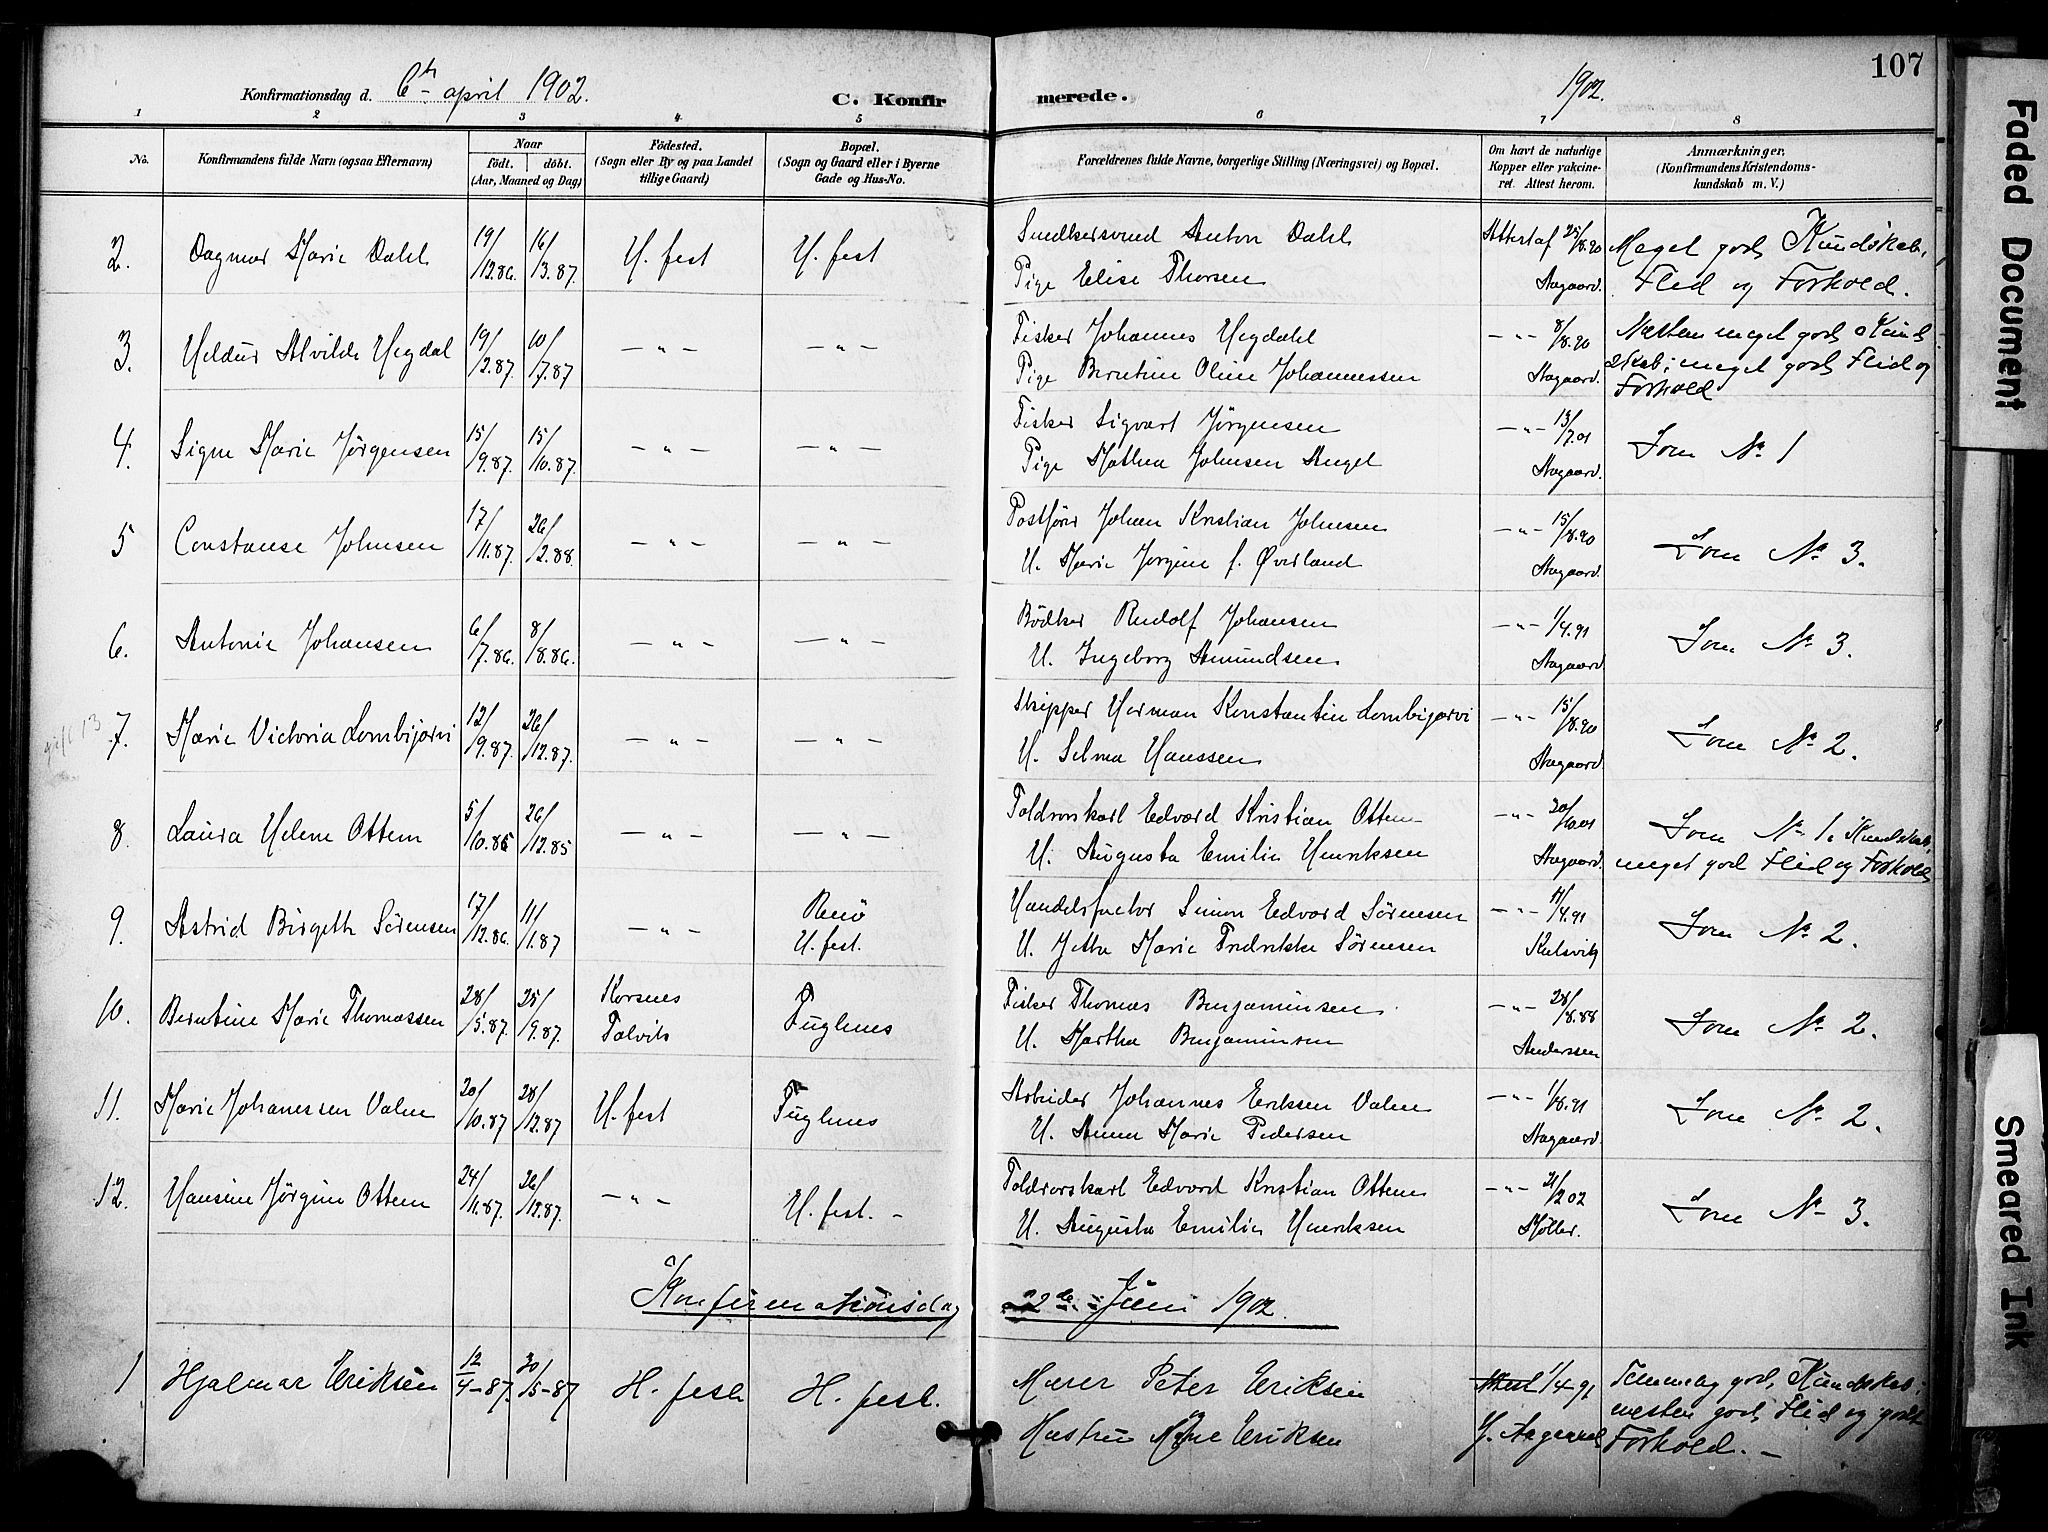 107
Konfirmationsdag d. 6te april 1902. C. Konfirmerede. 1902.
1 2 3 4 5 6 7 8
No. Konfirmandens fulde Narn (ogsaa Efternavn) Naar født. døbt. (Aar, Maaned og Dag) Fødested. (Sogn eller By og paa Landet tillige Gaard) Bopæl. (Sogn og Gaard eller i Byerne Gade og Hus-No. Forældrenes fulde Navne, borgerlige Stilling (Næringsvei) og Bopæl. Om havt de naturlige Kopper eller vakcineret. Attest herom. Anmærkninger. (Konfirmandens Kristendomskundskab m. V.)
2. Dagmar Marie Dahl 19/12.86. 16/3.87 H. fest H. fest Smedkersvend Anton Dahl Attest af 25/8.90 Meget god Kundskab,
Pige Elise Thorsen Aagaard. Flid og Forhold.
3. Heldur Alvilde Hegdal 19/2.87. 10/7.87 — " — — " — Fisker Johannes Hegdahl — " — 8/8.90 Næsten meget god Kund
Pige Berntine Oline Johannessen Aagaard. skab; meget god Flid og
Forhold
4. Signe Marie Jørgensen 15/9.87. 15/10.87. — " — — " — Fisker Sigvart Jørgensen — " — 13/7.01 Som No 1
Pige Mathea Johnsen Angel Aagaard.
5 Constanse Johnsen 17/11.87. 26/2.88. — " — — " — Postfører Johan Kristian Johnsen — " — 15/8.90 Som No 3.
H. Marie Jørgine f. Øverland Aagaard.
6. Antonie Johansen 6/7.86. 8/8.86. — " — — " — Bödker Rudolf Johansen — " — 1/4.91 Som No 3.
H. Ingeborg Amundsen Aagaard.
gift 13
7. Marie Victoria Lombijärvi 12/9.87. 26/12.87. — " — — " — Skipper Herman Konstantin Lombijärvi — " — 15/8.90 Som No 2.
H. Selma Hanssen Aagaard.
8. Laura Helene Ottem 5/10.85 26/12.85 — " — — " — Toldrorskarl Edvard Kristian Ottem — " — 20/10.01 Som No 1. Kundskab,
H. Augusta Emilie Henriksen Aagaard. meget god Flid og Forhold
9. Astrid Birgeth Sörensen 17/12.86. 11/1.87 — " — Renö Handelsfactor Simon Edvard Sörensen — " — 11/4.91 Som No 2.
H. fest. H. Jetta Marie Fredrikke Sörensen
10. Berntine Marie Thomassen 28/5.87. 25/9.87. Korsnes Fuglenes Fisker Thomas Benjaminsen — " — 28/8.88 Som No 2.
Talvik H. Martha Benjaminsen Anderssen
11. Marie Johanessen Valen 20/10.87 28/12.87 H. fest Fuglenes Arbeider Johannes Eriksen Valen — " — 1/8.91 Som No 2.
H. Anna Marie Pedersen Aagaard.
12. Hansine Jørgine Ottem 24/11.87. 26/12.87. — " — H. fest. — Toldrorskarl Edvard Kristian Ottem — " — 21/2 02 Som No 3.
H. Augusta Emilie Henriksen Møller.
Konfirmationsdag 22de Juni 1902.
1 Hjalmar Eriksen 12/4-87. 30/5-87 H. fest H. fest. Murer Peter Eriksen Attest 1/4 91 Temmelig god Kundskab;
Hustru Eriksen J. Aagaard næsten god Flid og godt
Forhold. —
Faded Document
Smeared Ink